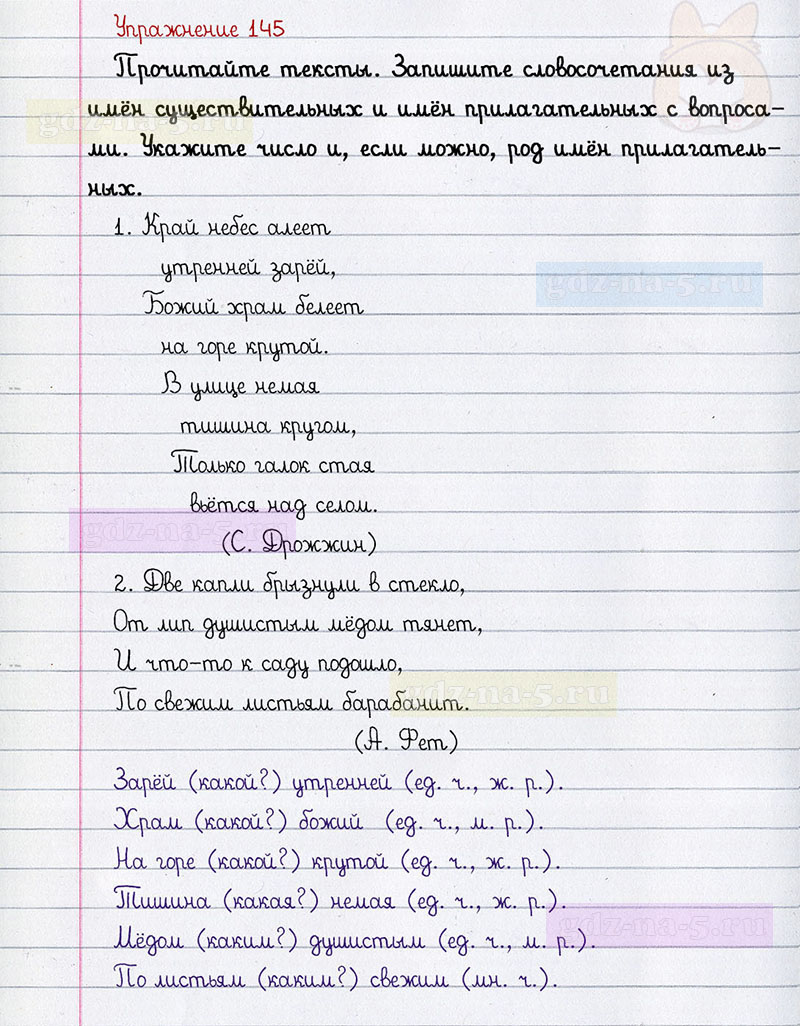 Упражнение 145
Прочитайте тексты. Запишите словосочетания из
имён существительных и имён прилагательных с вопроса-
ми. Укажите число и, если можно, род имён прилагатель-
ных.
gdz-na-5.ru
1. Край небес алеет
утренней зарёй,
gdz-na-5.ru
Божий храм белеет
на горе крутой.
В улице немая
тишина кругом,
Только галок стая
вьётся над селом.
gdz-na-5.ru
(С. Дрожжин)
2. Две капли брызнули в стекло,
От лип душистым мёдом тянет,
И что-то к саду подошло,
По свежим листьям барабанит.
gdz-na-5.ru
(А. Фет)
Зарёй (какой?) утренней (ед. ч., ж. р.).
Храм (какой?) божий (ед. ч., м. р.).
На горе (какой?) крутой (ед. ч., ж. р.).
Тишина (какая?) немая (ед. ч., ж. р.).
gdz-na-5.ru
Мёдом (каким?) душистым (ед. ч., м. р.).
По листьям (каким?) свежим (мн. ч.).